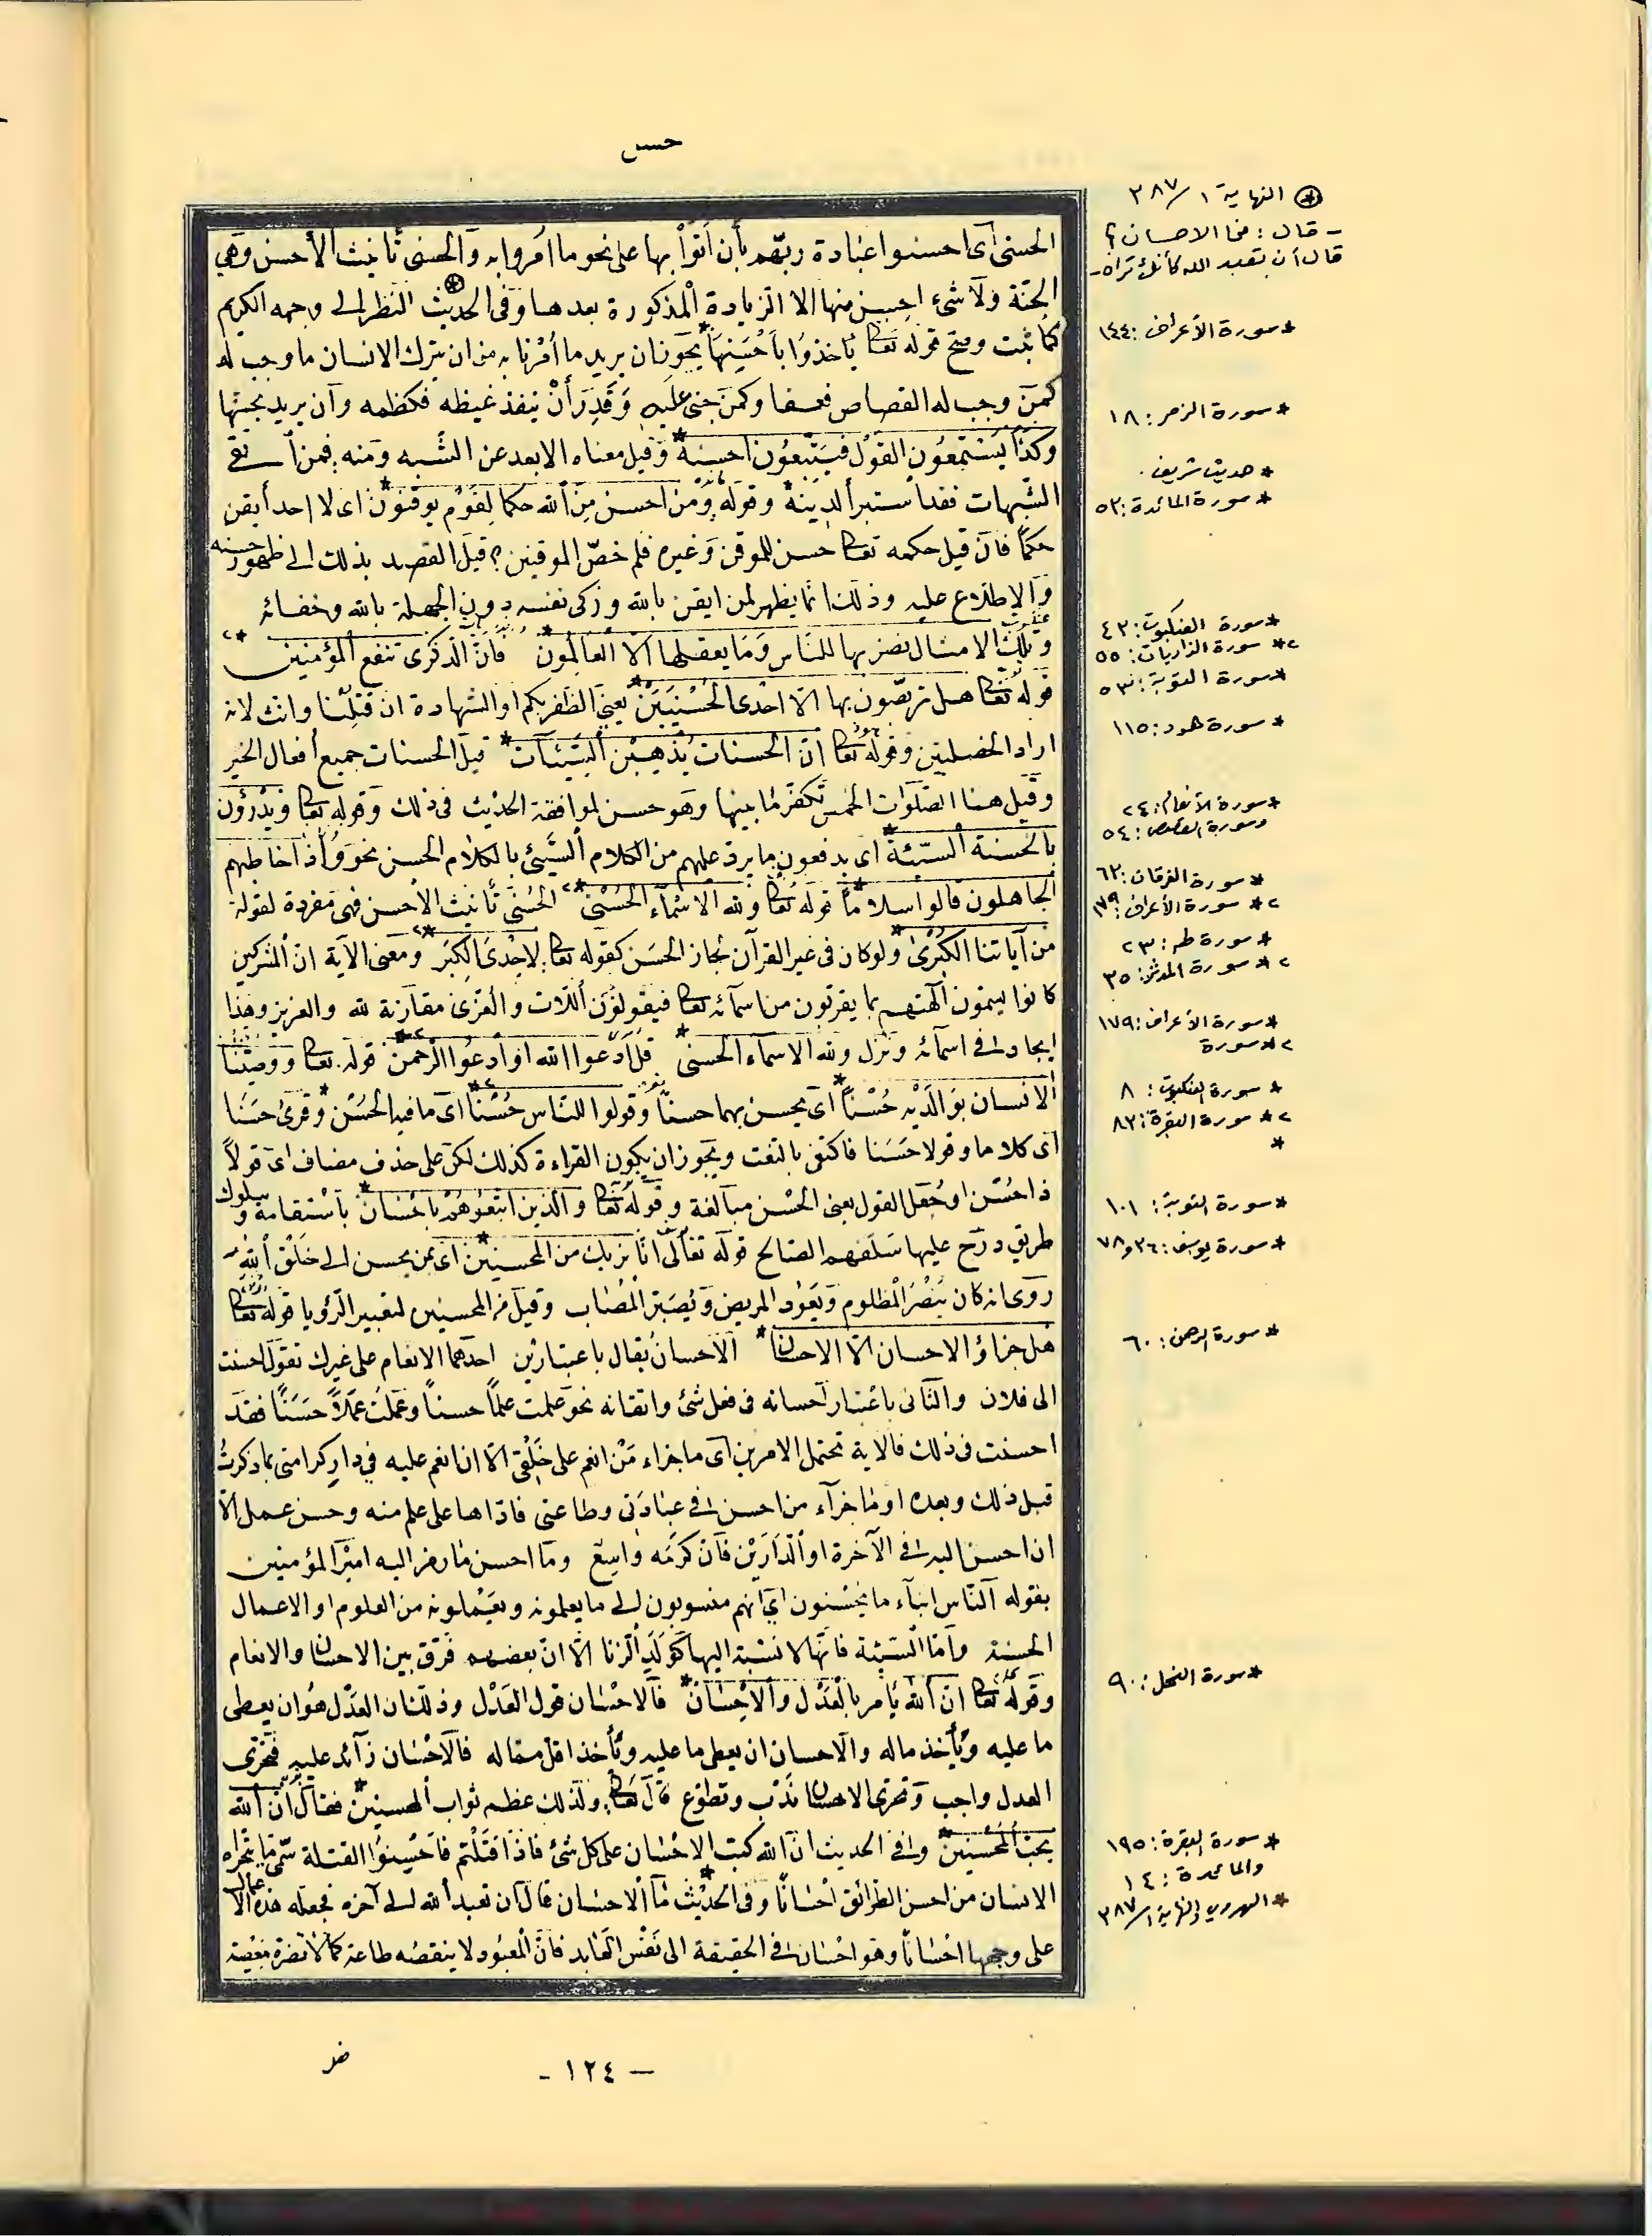 حسن
الحسنى اى احسنوا عبادة ربّهم بأن أتوا بها على نحو ما امروا به والحسنى تأنيث الأحسن وهي
الجنّة ولا شىء احسن منها الا الزيادة المذكورة بعدها وفى الحديث النظر الى وجهه الكريم
كما ثبت وصح قوله تعالى يأخذوا بأحسنها يجوز ان يريد ما أمرنا به من ان يترك الانسان ما وجب له
كمن وجب له القصاص فعفا وكمن جنى عليه وقدر أن ينفذ غيظه فكظمه وان يريد بحسنها
وكذا يستمعون القول فيتّبعون احسنه وقيل معناه الابعد عن الشبه ومنه فمن اتقى
الشّبهات فقد استبرأ لدينه وقوله ومن احسن من الله حكما لقوم يوقنون اى لا احد أيقن
حكمًا فان قيل حكمه تعالى حسن للموقن وغيره فلم خصّ الموقنين؟ قيل القصد بذلك الى ظهور حسنه
والاطلاع عليه وذلك انما يظهر لمن ايقن بالله وزكى نفسه دون الجهلة بالله وخفائه
وتلك الامثال نضربها للنّاس وما يعقلها الّا العالمون فانّ الذّكرى تنفع المؤمنين
قوله تعالى هل تربّصون بها الّا احدى الحسنيين يعنى الظفر بكم او الشهادة ان قتلنا وانث لانه
اراد الخصلتين وقوله تعالى انّ الحسنات يذهبن السّيّئات قيل الحسنات جميع أفعال الخير
وقيل هنا الصّلوات الخمس تكفّر ما بينها وهو حسن لموافقة الحديث فى ذلك وقوله تعالى ويدرؤن
بالحسنة السّيّئة اى يدفعون ما يرد عليهم من الكلام السّيّئ بالكلام الحسن نحو واذا خاطبهم
الجاهلون قالوا سلامًا قوله تعالى ولله الاسماء الحسنى الحسنى تأنيث الأحسن فهى مفردة لقوله
من آياتنا الكبرى ولو كان فى غير القرآن لجاز الحسن كقوله تعالى لاحدى الكبر ومعنى الآية ان المشركين
كانوا يسمون آلهتهم بما يقربون من اسمائه تعالى فيقولون اللّات والعزى مقارنة لله والعزيز وهذا
ايحاد فى اسمائه ونزل ولله الاسماء الحسنى قل ادعوا الله او ادعوا الرّحمن قوله تعالى ووصّينا
الانسان بوالديه حسنًا اى يحسن بهما حسنًا وقولوا للنّاس حسنًا اى ما فيه الحسن وقرئ حسنا
اى كلاما وقولا حسنا فاكتفى بالنعت ويجوز ان يكون القراءة كذلك لكن على حذف مضاف اى قولاً
ذا حسن او جعل القول يعنى الحسن مبالغة وقوله تعالى والّذين اتبعوهم باحسان باستقامة وسلوك
طريق درج عليها سلفهم الصّالح قوله تعالى انّا نريك من المحسنين اى ممن يحسن الى خلق الله
روى انه كان ينصر المظلوم ويعود المريض ويصبّر المصاب وقيل من المحسنين لتعبير الرّؤيا قوله تعالى
هل جزاؤ الاحسان الّا الاحسان الاحسان يقال باعتبارين احدهما الانعام على غيرك تقول احسنت
الى فلان والثانى باعتبار احسانه فى فعل شئ واتقانه نحو علمت علمًا حسنًا وعملت عملًا حسنًا فقد
احسنت فى ذلك فالاية تحتمل الامرين اى ما جزاء من انعم على خلقى الّا ان انعم عليه في دار كرامتى بما ذكرت
قبل ذلك وبعده او ما جزآء من احسن فى عبادتى وطاعتى فادّاها على علم منه وحسن عمل الّا
ان احسن اليه فى الآخرة او الدّارين فانّ كرمه واسع وما احسن ما رمز اليه امير المؤمنين
بقوله النّاس ابنآء ما يحسنون اى انهم منسوبون الى ما يعلمونه ويعملونه من العلوم او الاعمال
الحسنة وأمّا السّيّئة فانّها لا نسبة اليها كولد الزنا الّا انّ بعضهم فرّق بين الاحسان والانعام
وقوله تعالى انّ الله يأمر بالعدل والاحسان فالاحسان فوق العدل وذلك ان العدل هو ان يعطى
ما عليه ويأخذ ماله والاحسان ان يعطى ما عليه ويأخذ اقل مما له فالاحسان زآئد عليه فتحرّى
العدل واجب وتحرّى الاحسان ندب وتطوّع قال تعالى ولذلك عظم ثواب المحسنين فقال انّ الله
يحبّ المحسنين وفى الحديث انّ الله كتب الاحسان على كل شئ فاذا قتلتم فاحسنوا القتلة سمّى ما يتحراه
الانسان من احسن الطرائق احسانًا وفى الحديث ما الاحسان قال ان تعبد الله الى آخره فجعله هذه الاعمال
على وجهها احسانًا وهو احسان فى الحقيقة الى نفس العابد فانّ المعبود لا ينقصه طاعة كما لا تضره معصية
النهاية ١/٣٨٧
- قال: فما الاحسان؟
قال أن تعبد الله كأنك تراه-
* سورة الأعراف: ١٤٤
* سورة الزمر: ١٨
* حديث شريف.
* سورة المائدة: ٥٣
* سورة العنكبوت: ٤٣
٢* سورة الذاريات: ٥٥
* سورة التوبة: ٥٣
* سورة هود: ١١٥
* سورة الأنعام: ٢٤
وسورة القصص: ٥٤
* سورة الفرقان: ٦٣
٢* سورة الأعراف: ١٧٩
* سورة طه: ٢٣
٢* سورة المدثر: ٣٥
* سورة الأعراف: ١٧٩
٢* سورة
* سورة العنكبوت: ٨
٢* سورة البقرة: ٨٣
*
* سورة التوبة: ١٠١
* سورة يوسف: ٣٦ و٧٨
* سورة الرحمن: ٦٠
* سورة النحل: ٩٠
* سورة البقرة: ١٩٥
والمائدة: ١٤
* الهروي والنهاية ١/٣٨٧
- ١٢٤ -